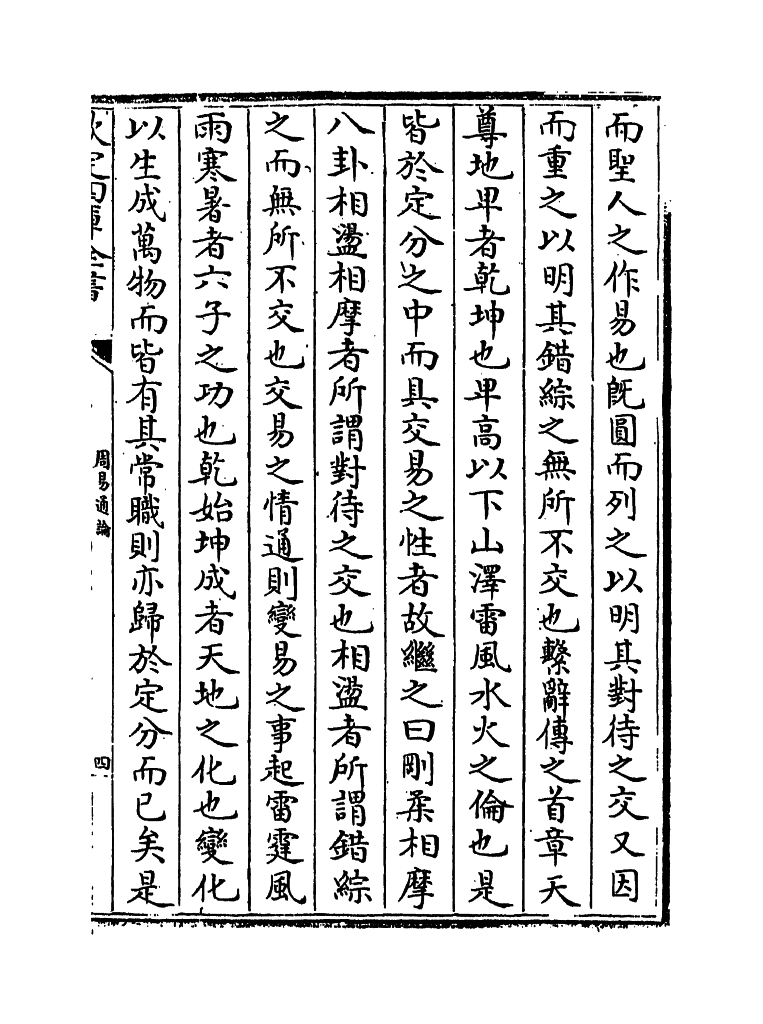 而聖人之作易也既圓而列之以明其對待之交又因
而重之以明其錯綜之無所不交也繫辭傳之首章天
尊地卑者乾坤也卑高以下山澤雷風水火之倫也是
皆於定分之中而具交易之性者故繼之曰剛柔相摩
八卦相盪相摩者所謂對待之交也相盪者所謂錯綜
之而無所不交也交易之情通則變易之事起雷霆風
雨寒暑者六子之功也乾始坤成者天地之化也變化
以生成萬物而皆有其常職則亦歸於定分而已矣是
欽定四庫全書
周易通論
四